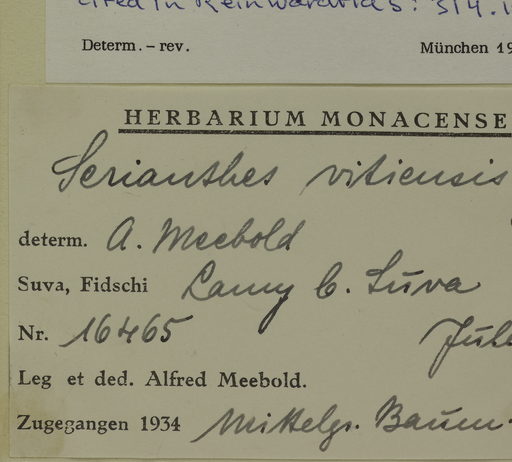 cited in Reinwardtia 5: 314.
Determ. – rev. München 19
HERBARIUM MONACENSE
Serianthes vitiensis
determ. A. Meebold
Suva, Fidschi Lamy b. Suva
Nr. 16465
Leg et ded. Alfred Meebold.
Zugegangen 1934 Mittelgr. Baum